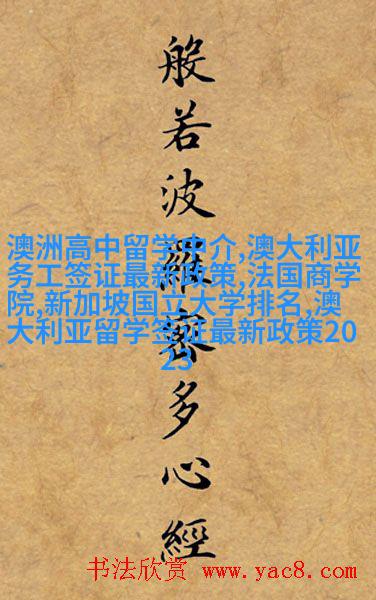 般若波羅蜜多心經
澳洲高中留学中介,澳大利亚
务工签证最新政策,法国商学
院,新加坡国立大学排名,澳
大利亚留学签证最新政策20
23
书法欣赏 www.yac8.com